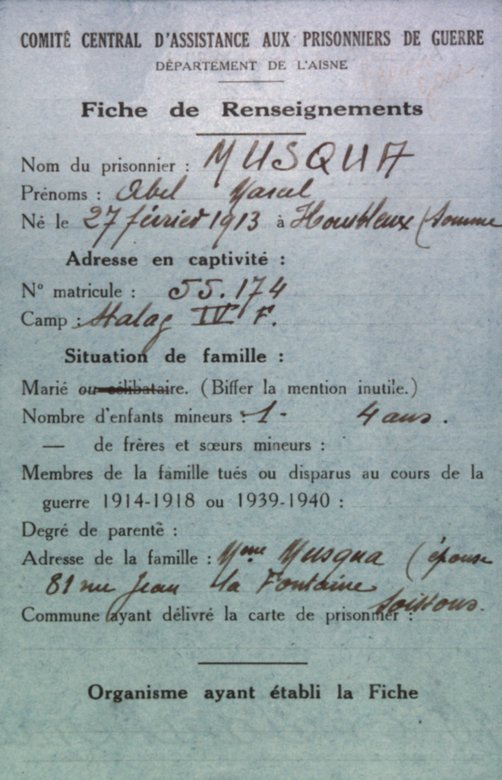 COMITÉ CENTRAL D'ASSISTANCE AUX PRISONNIERS DE GUERRE
DÉPARTEMENT DE L'AISNE
Fiche de Renseignements
Nom du prisonnier : MUSQUA
Prénoms : Abel Marcel
Né le 27 février 1913 à (Somme
Adresse en captivité :
N° matricule : 55.174
Camp : Stalag IV F.
Situation de famille :
Marié ou célibataire. (Biffer la mention inutile.)
Nombre d'enfants mineurs : 1 - 4 ans.
— de frères et sœurs mineurs :
Membres de la famille tués ou disparus au cours de la
guerre 1914-1918 ou 1939-1940 :
Degré de parenté :
Adresse de la famille : Mme Musqua (épouse
81 rue Jean la Fontaine
Soissons.
Commune ayant délivré la carte de prisonnier :
Organisme ayant établi la Fiche